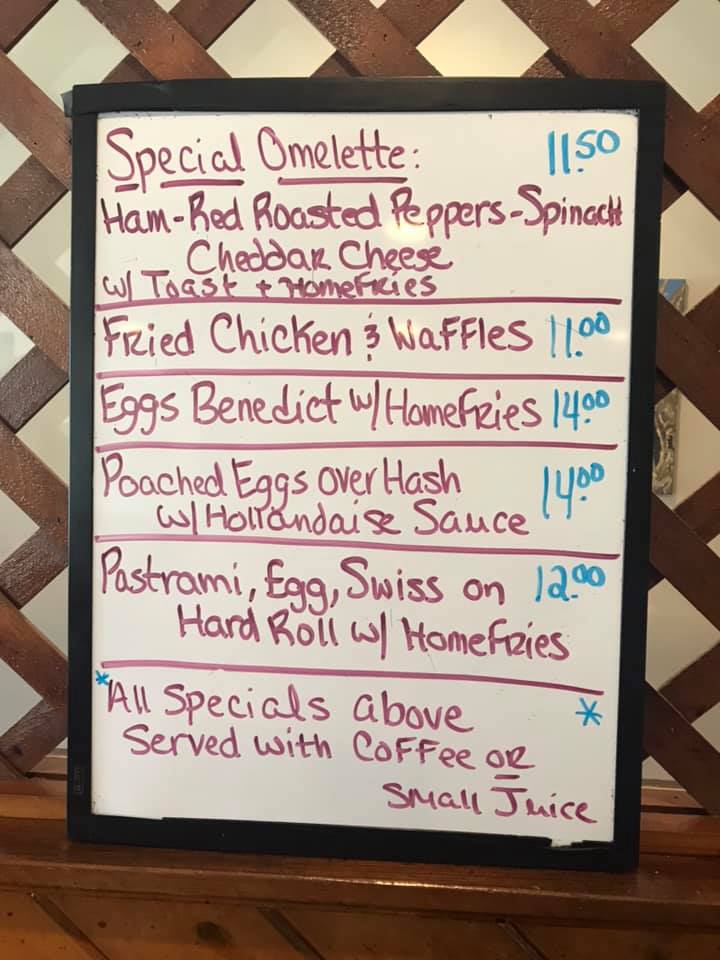 Special Omelette: 11.50
Ham-Red Roasted Peppers-Spinach
Cheddar Cheese
w/ Toast + Homefries
Fried Chicken & Waffles 11.00
Eggs Benedict w/ Homefries 14.00
Poached Eggs over Hash 14.00
w/ Hollandaise Sauce
Pastrami, Egg, Swiss on 12.00
Hard Roll w/ Homefries
*All Specials above *
Served with Coffee or
Small Juice